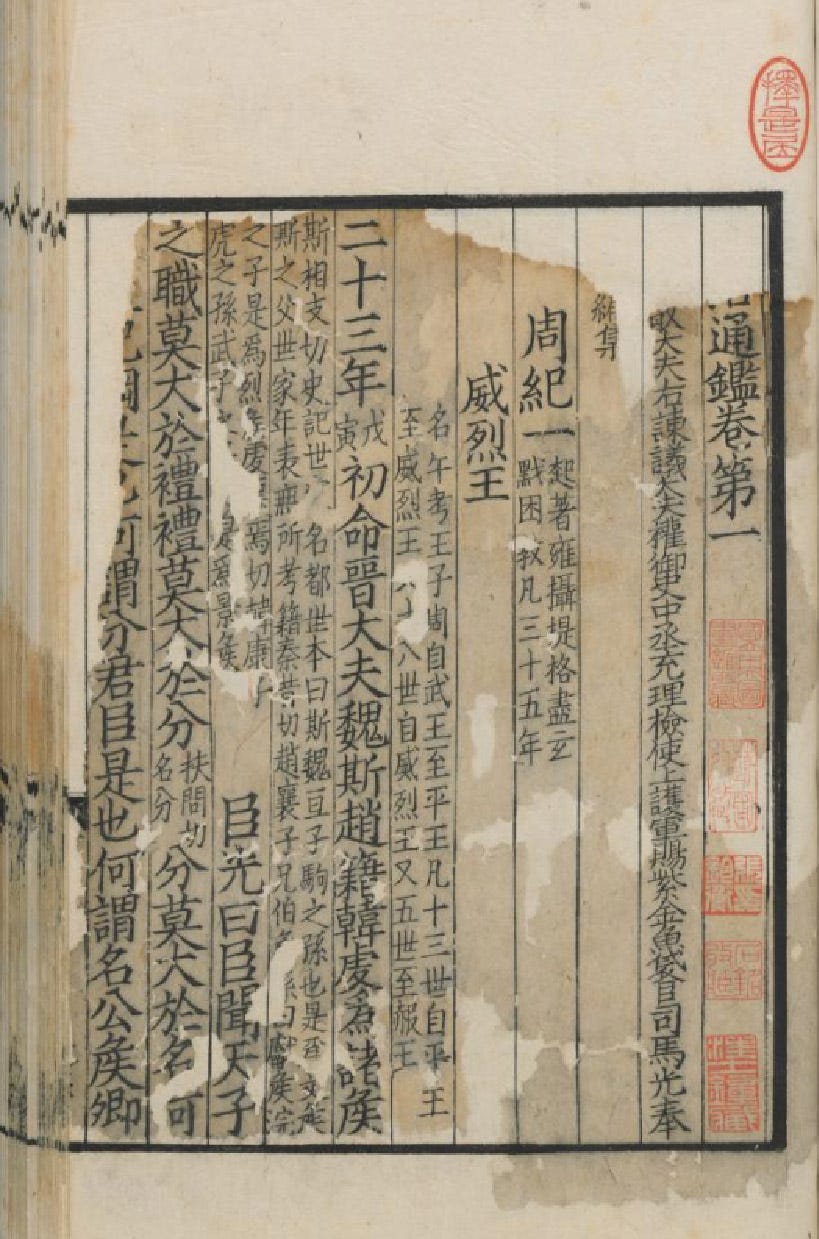 通鑑卷第一
大夫右諫議大夫權御史中丞充理檢使上護軍賜紫金魚袋臣司馬光奉
周紀一起著雍攝提格盡玄黓困敦凡三十五年
威烈王
名午考王子周自武王至平王凡十三世自平王
至威烈王十八世自威烈王又五世至赧王
二十三年戊寅初命晉大夫魏斯趙籍韓虔為諸侯
斯相支切史記世名都世本曰斯魏亘子駒之孫也是爲文侯
斯之父世家年表所考籍秦昔切趙襄子兄伯
之子是爲烈侯虔焉切韓康子
虎之孫武子是爲景侯 臣光曰臣聞天子
之職莫大於禮禮莫大於分扶問切名分分莫大於名可
何謂分君臣是也何謂名公侯卿